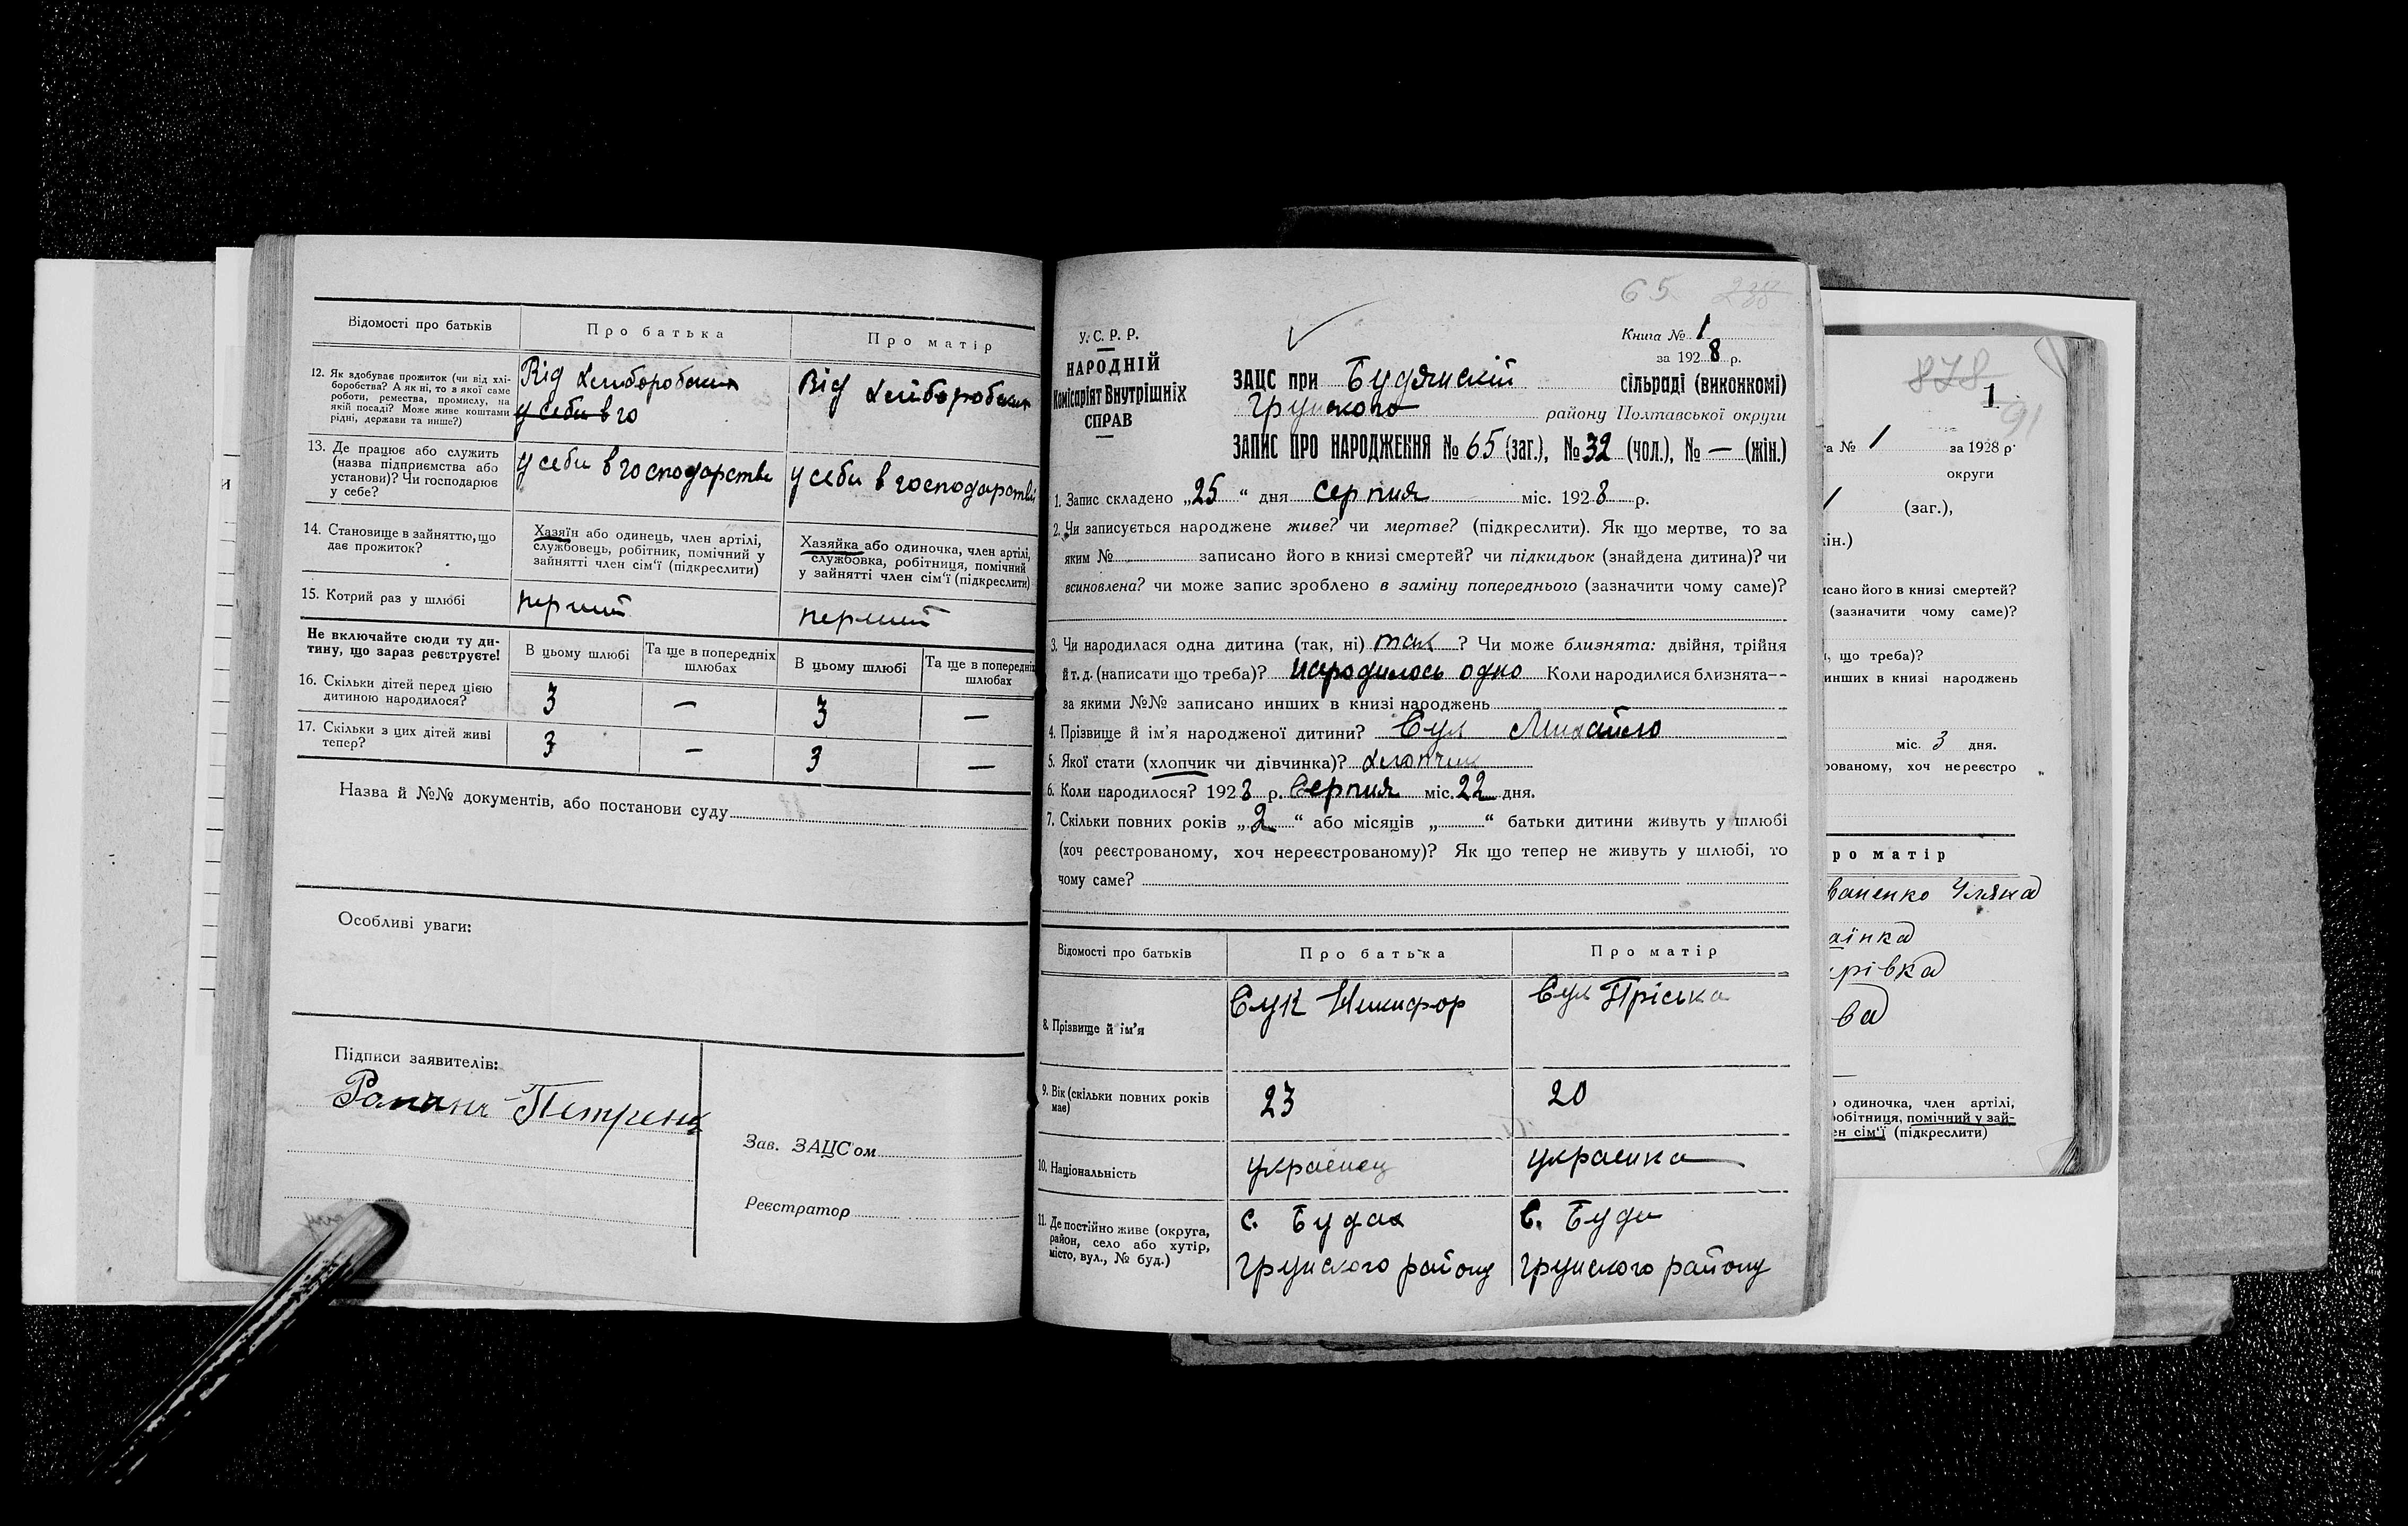 Відомості про батьків
Про батька
Про матір
12. Як здобуває прожиток (чи від хлі-
боробства? А як ні, то з якої саме
роботи, ремества, промислу, на
якій посаді? Може живе коштами
рідні, держави та инше?)
Від
у себи в го
Від
13. Де працює або служить
(назва підприємства або
установи)? Чи господарює
у себе?
у себи в господарстви
у себи в господарстві
14. Становище в зайняттю, що
дає прожиток?
Хазяїн або одинець, член артілі,
службовець, робітник, помічний у
зайнятті член сім'ї (підкреслити)
Хазяйка або одиночка, член артілі,
службовка, робітниця, помічний
у зайнятті член сім'ї (підкреслити)
15. Котрий раз у шлюбі
перший
перший
Не включайте сюди ту ди-
тину, що зараз реєструєте!
В цьому шлюбі
Та ще в попередніх
шлюбах
В цьому шлюбі
Та ще в попередніх
шлюбах
16. Скільки дітей перед цією
дитиною народилося?
3 — 3 —
17. Скільки з цих дітей живі
тепер?
3 — 3 —
Назва й №№ документів, або постанови суду
Особливі уваги:
Підписи заявителів:
Зав. ЗАЦС'ом
Реєстратор
65 238
У. С. Р. Р.
НАРОДНІЙ
Комісаріят Внутрішніх
СПРАВ
Книга № 1
за 1928 р.
ЗАЦС при Будянскій сільраді (виконкомі)
Грунского району Полтавської округи
ЗАПИС ПРО НАРОДЖЕННЯ № 65 (заг.), № 32 (чол.), № — (жін.)
1. Запис складено „25“ дня серпня міс. 1928 р.
2. Чи записується народжене живе? чи мертве? (підкреслити). Як що мертве, то за
яким № записано його в книзі смертей? чи підкидьок (знайдена дитина)? чи
всиновлена? чи може запис зроблено в заміну попереднього (зазначити чому саме)?
3. Чи народилася одна дитина (так, ні) так ? Чи може близнята: двійня, трійня
й т. д. (написати що треба)? народилось одно Коли народилися близнята--
за якими №№ записано инших в книзі народжень
4. Прізвище й ім'я народженої дитини? Сук Михайло
5. Якої стати (хлопчик чи дівчинка)? хлопчик
6. Коли народилося? 1928 р. Серпня міс. 22 дня.
7. Скільки повних років „2“ або місяців „ “ батьки дитини живуть у шлюбі
(хоч реєстрованому, хоч нереєстрованому)? Як що тепер не живуть у шлюбі, то
чому саме?
Відомості про батьків
Про батька
Про матір
8. Прізвище й ім'я
Сук Никифор
Сук Пріська
9. Вік (скільки повних років
має)
23
20
10. Національність
украенец
украенка
11. Де постійно живе (округа,
район, село або хутір,
місто, вул., № буд.)
с. Будах
Грунского району
с. Буди
Грунского району
878
1
91
а № 1 за 1928 р.
округи
(заг.),
ін.)
исано його в книзі смертей?
(зазначити чому саме)?
, що треба)?
инших в книзі народжень
міс. 3 дня.
рованому, хоч нереєстро
ро матір
ваненко Уляна
аїнка
рівка
ва
одиночка, член артілі,
робітниця, помічний у зай-
ен сім'ї (підкреслити)